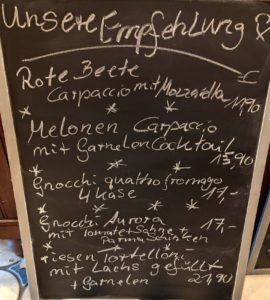 Unsere Empfehlung
€
Rote Beete
Carpaccio mit Mozzarella 11,90
Melonen Carpaccio
mit Garnelen Cocktail
13,90
Gnocchi quattro fromago
4 Käse 17,-
Gnocchi Aurora
mit Tomate + Sahne + 17,-
Parma Schinken
Riesen Tortelloni
mit Lachs gefüllt
+ Garnelen 21,90